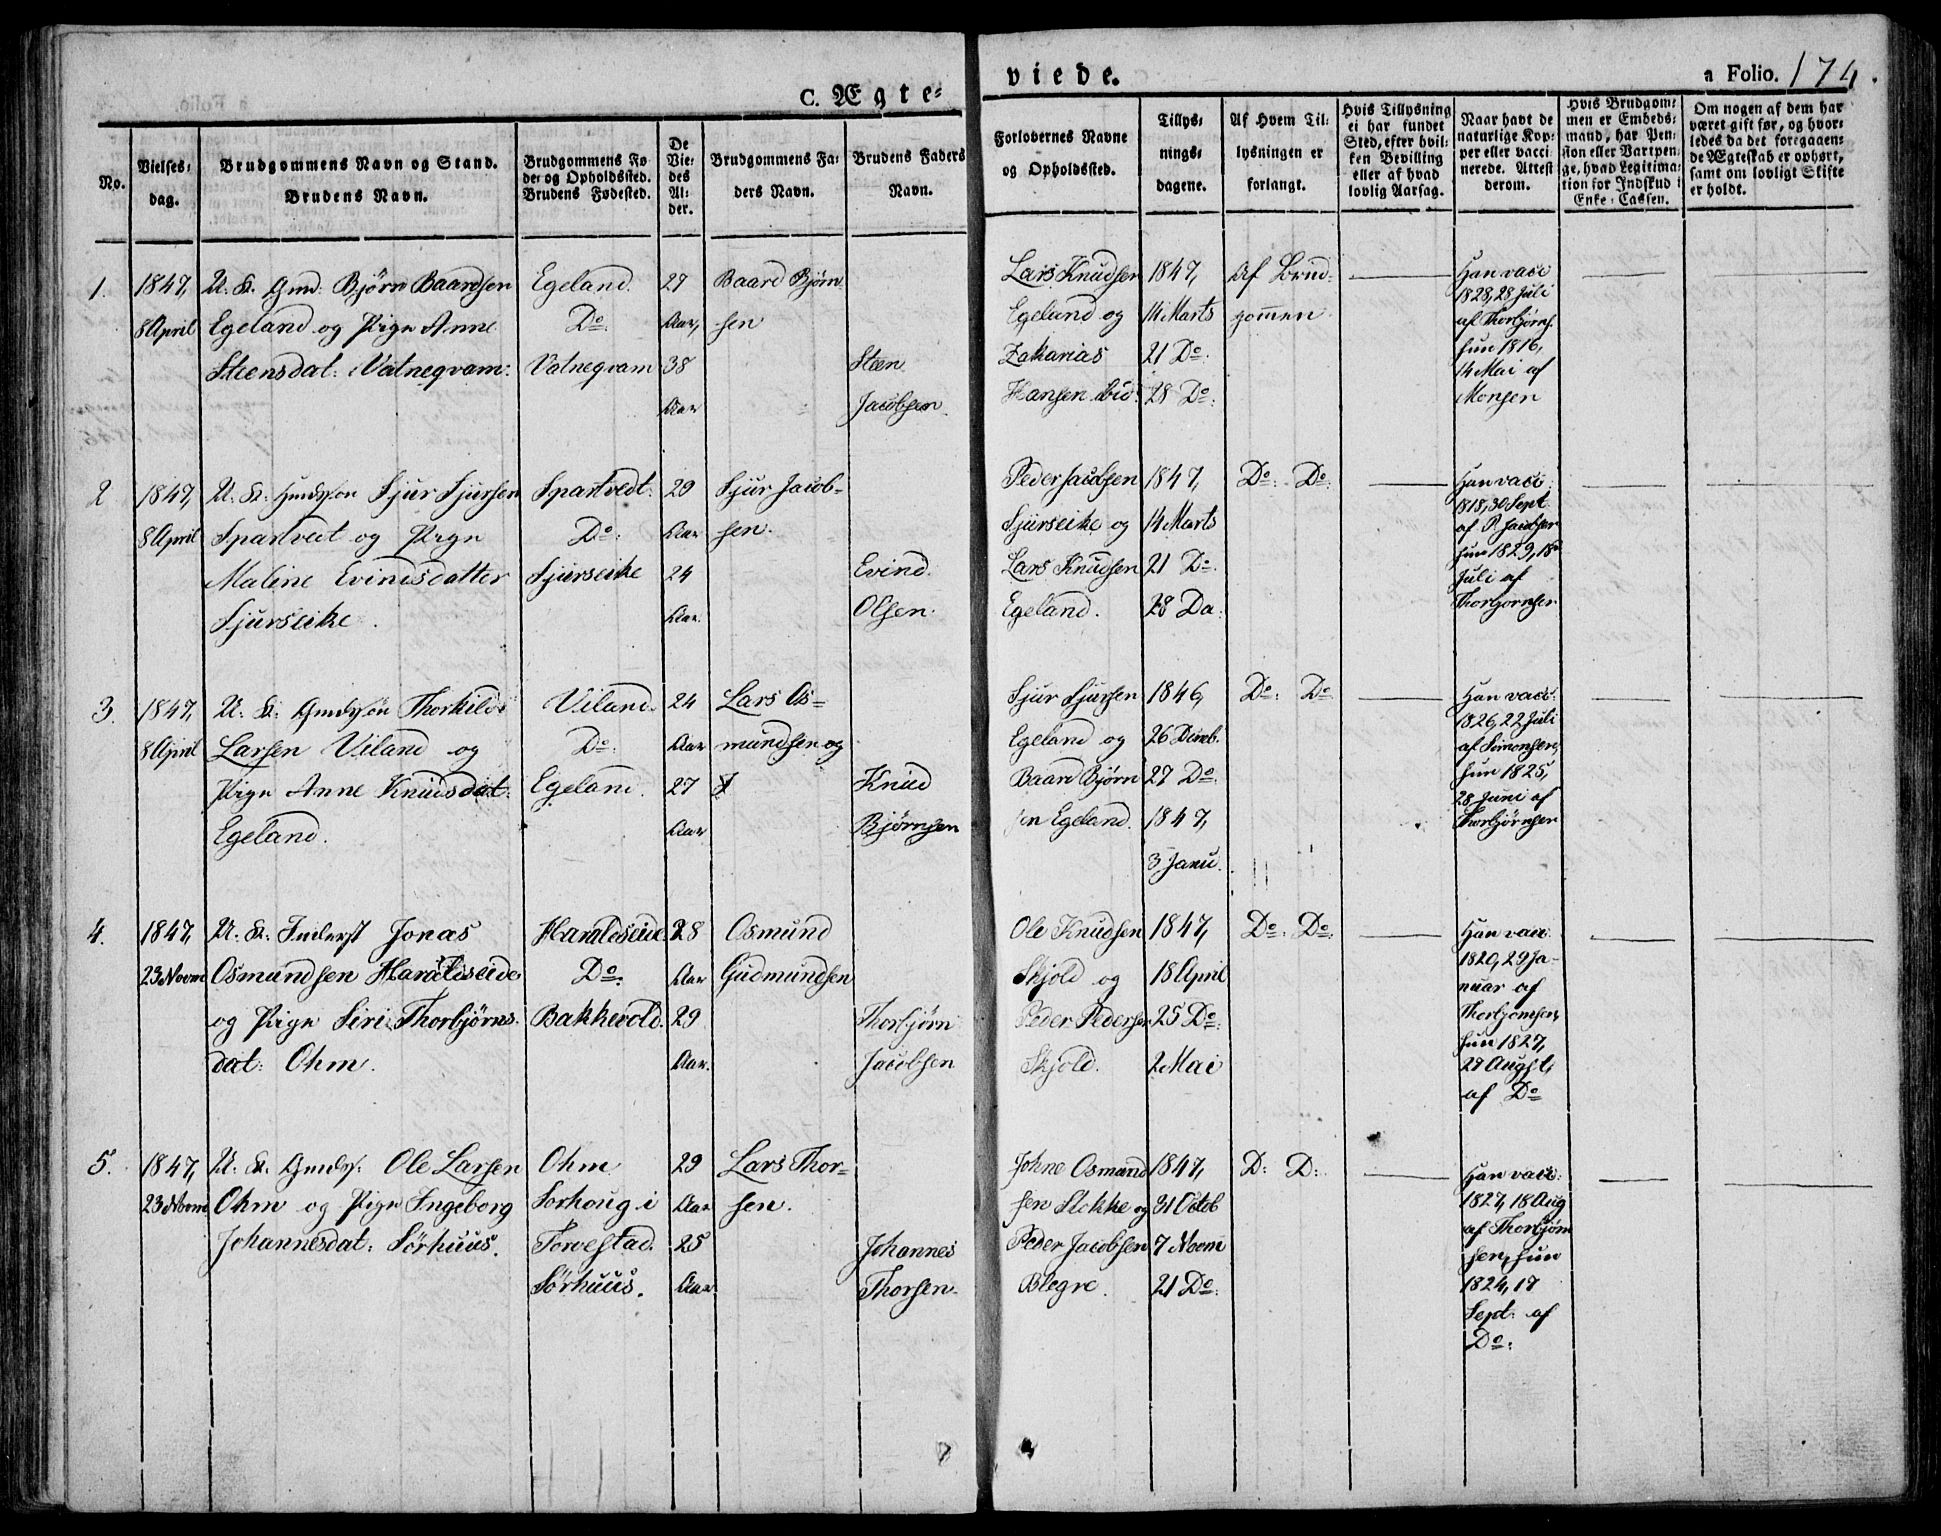 C. Ægte-
viede.
a Folio. 174.
No.
Vielses-
dag.
Brudgommens Navn og Stand.
Brudens Navn.
Brudgommens Fø-
de- og Opholdssted.
Brudens Fødested.
De
Vie-
des
Al-
der.
Brudgommens Fa-
ders Navn.
Brudens Faders
Navn.
Forlovernes Navne
og Opholdssted.
Tillys-
nings-
dagene.
Af Hvem Til-
lysningen er
forlangt.
Hvis Tillysning
ei har fundet
Sted, efter hvil-
ken Bevilling
eller af hvad
lovlig Aarsag.
Naar havt de
naturlige Kop-
per eller vacci-
nerede. Attest
derom.
Hvis Brudgom-
men er Embeds-
mand, har Pen-
sion eller Vartpen-
ge, hvad Legitima-
tion for Indskud i
Enke-Cassen.
Om nogen af dem har
været gift før, og hvor-
ledes da det foregaaen-
de Ægteskab er ophørt,
samt om lovligt Skifte
er holdt.
1.
1847,
8 April
U. K. Gmd: Bjørn Baardsen
Egeland og Pige Anne
Steensdat: Vatneqvam.
Egeland.
Do
Vatneqvam
27
Aar,
38
Aar
Baard Bjørn
sen
Steen
Jacobsen.
Lars Knudsen
Egeland og
Zakarias
Hansen ibid:
1847,
14 Marts
21 Do.
28 Do:
Af Brud-
gom̄en
Han vacc
1828, 28 Juli
af Thorbjørns.
hun 1816,
14 Mai af
Monsen
2
1847,
8 April
U. K. Gmdssøn Sjur Sjursen
Spartvedt og Pige
Maline Evindsdatter
Sjurseike.
Spartvedt.
Do:
Sjurseike
29
Aar
24
Aar.
Sjur Jacob-
sen.
Evind
Olsen.
Peder Jacobsen
Sjurseike og
Lars Knudsen
Egeland.
1847,
14 Marts
21 Do.
28 Do.
Do: Do:
Han vacc:
1818, 30 Sept
af P. Jacobsen
hun 1829, 18
Juli af
Thorbjørnsen
3.
1847,
8 April
U. K. Gmdssøn Thorkild
Larsen Viland og
Pige Anne Knudsdat:
Egeland.
Viland.
Do:
Egeland.
24
Aar
27
Aar
Lars Os-
mundsen og
Knud
Bjørnsen
Sjur Sjursen
Egeland og
Baard Bjørn
sen Egeland.
1846,
26 Decmb.
27 Do:
1847,
3 Janu.
Do: Do
Han vacc:
1826, 22 Juli
af Simonsen,
hun 1825,
28 Juni af
Thorbjørnsen
4.
1847,
23 Novm
U. K. Inderst Jonas
Osmundsen Haraldseide
og Pige Siri Thorbjørns-
dat: Ohm.
Haraldseide.
Do.
Bakkevold.
28
Aar
29
Aar.
Osmund
Gudmundsen
Thorbjørn
Jacobsen
Ole Knudsen
Skjold og
Peder Pedersen
Skjold.
1847,
18 April
25 Do:
2 Mai
Do: Do:
Han vacc:
1820, 29 Ja-
nuar af
Thorbjørnsen,
hun 1827,
27 August,
af Do
5.
1847,
23 Novm
U. K. Gmdss: Ole Larsen
Ohm og Pige Ingeborg
Johannesdat: Sørhuus.
Ohm
Sørhoug i
Torvestad.
Sørhuus.
29
Aar
25
Aar
Lars Thor-
sen.
Johannes
Thorsen.
Johne Osmund
sen Stokke og
Peder Jacobsen
Blegre.
1847,
31 Octob
7 Novm
21 Do:
D: D:
Han vacc:
1827, 18 Aug
af Thorbjørn
sen, hun
1824, 17
Sept: af
Do: